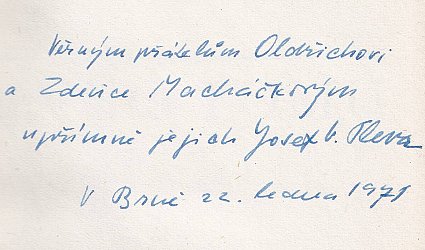 Věrným přátelům Oldřichovi
a Zdence Macháčkovým
upřímně jejich Josef V. Pleva
V Brně 22. ledna 1971